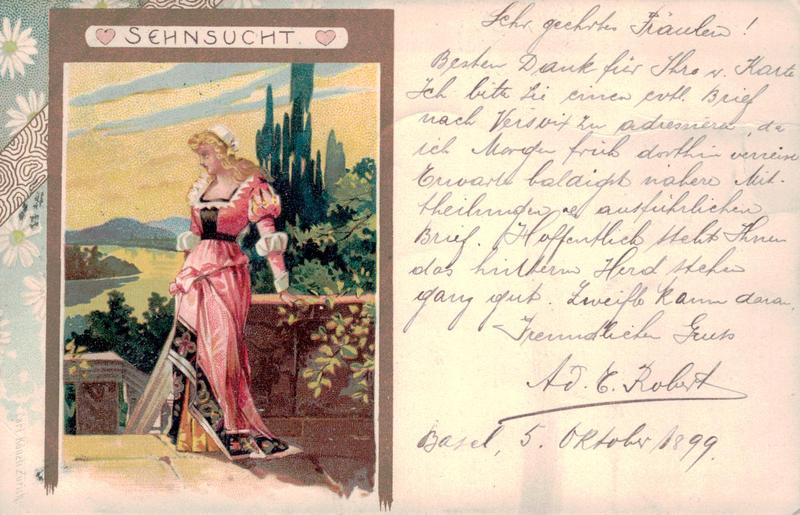 SEHNSUCHT.
Sehr geehrtes Fräulein!
Besten Dank für Ihre w. Karte
Ich bitte Sie einen evtl. Brief
nach Versoix zu adressieren, da
ich Morgen früh dorthin verreise
Erwarte baldigst nähere Mit-
theilungen & ausführlichen
Brief. Hoffentlich steht Ihnen
das hinterm Herd stehen
ganz gut. Zweifle kaum daran.
Freundlichen Gruss
Ad. E. Robert
Basel, 5. Oktober 1899
Carl Künzli Zürich